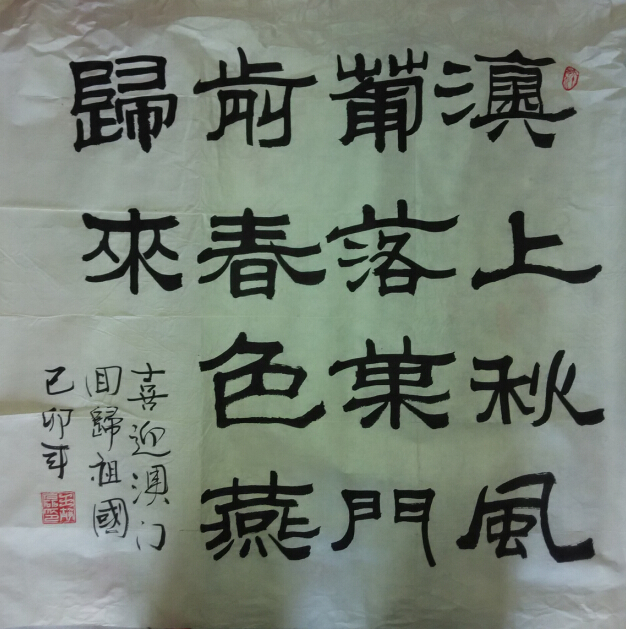 澳上秋風
葡落菓門
前春色燕
歸來
喜迎澳门
回歸祖國
己卯年